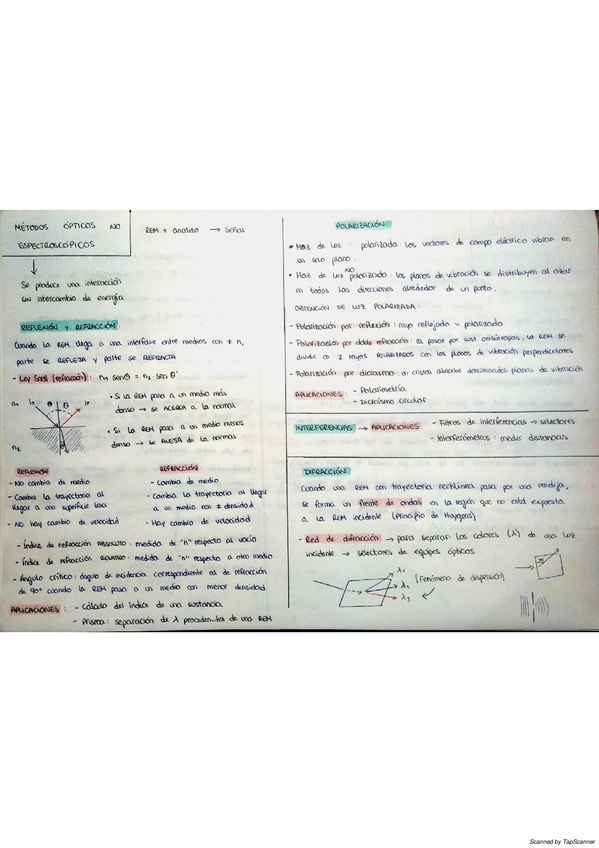 MÉTODOS ÓPTICOS NO
ESPECTROSCÓPICOS
REM + analito → Señal
Se produce una interacción
sin intercambio de energía
REFLEXIÓN Y REFRACCIÓN
Cuando la REM llega a una interfase entre medios con ≠ n,
parte se REFLEJA y parte se REFRACTA
- Ley Snell (refracción): n₁ senθ = n₂ · sen θ'
n₁ Io θ θ Ir
n₂ θ'
• Si la REM pasa a un medio más
denso → se ACERCA a la normal
• Si la REM pasa a un medio menos
denso → se ALEJA de la normal
REFLEXIÓN
- No cambia de medio
- Cambia la trayectoria al
llegar a una superficie lisa
- No hay cambio de velocidad
REFRACCIÓN
- Cambia de medio
- Cambia la trayectoria al llegar
a un medio con ≠ densidad
- Hay cambio de velocidad
- Índice de refracción ABSOLUTO: medida de "n" respecto al vacío
- Índice de refracción RELATIVO: medida de "n" respecto a otro medio
- Ángulo crítico: ángulo de incidencia correspondiente al de refracción
de 90° cuando la REM pasa a un medio con menor densidad
APLICACIONES: - Cálculo del índice de una sustancia
- Prisma: separación de λ procedentes de una REM
POLARIZACIÓN
• Haz de luz polarizada: los vectores de campo eléctrico vibran en
un solo plano.
• Haz de luz NO polarizada: los planos de vibración se distribuyen al azar
en todas las direcciones alrededor de un punto.
OBTENCIÓN DE LUZ POLARIZADA:
- Polarización por reflexión: rayo reflejado = polarizado
- Polarización por doble refracción: al pasar por sust. anisótropas, la REM se
divide en 2 rayos POLARIZADOS con los planos de vibración perpendiculares
- Polarización por dicroísmo: un cristal absorbe determinados planos de vibración
APLICACIONES: - Polarimetría
- Dicroísmo circular
INTERFERENCIAS → APLICACIONES: - Filtros de interferencias → selectores
- Interferómetros: medir distancias
DIFRACCIÓN
Cuando una REM con trayectoria rectilínea pasa por una rendija,
se forma un frente de ondas en la región que no está expuesta
a la REM incidente (Principio de Huygens)
- Red de difracción → para separar los colores (λ) de una luz
incidente → selectores de equipos ópticos
λ₁
λ₂
λ₃
(Fenómeno de dispersión)
Scanned by TapScanner